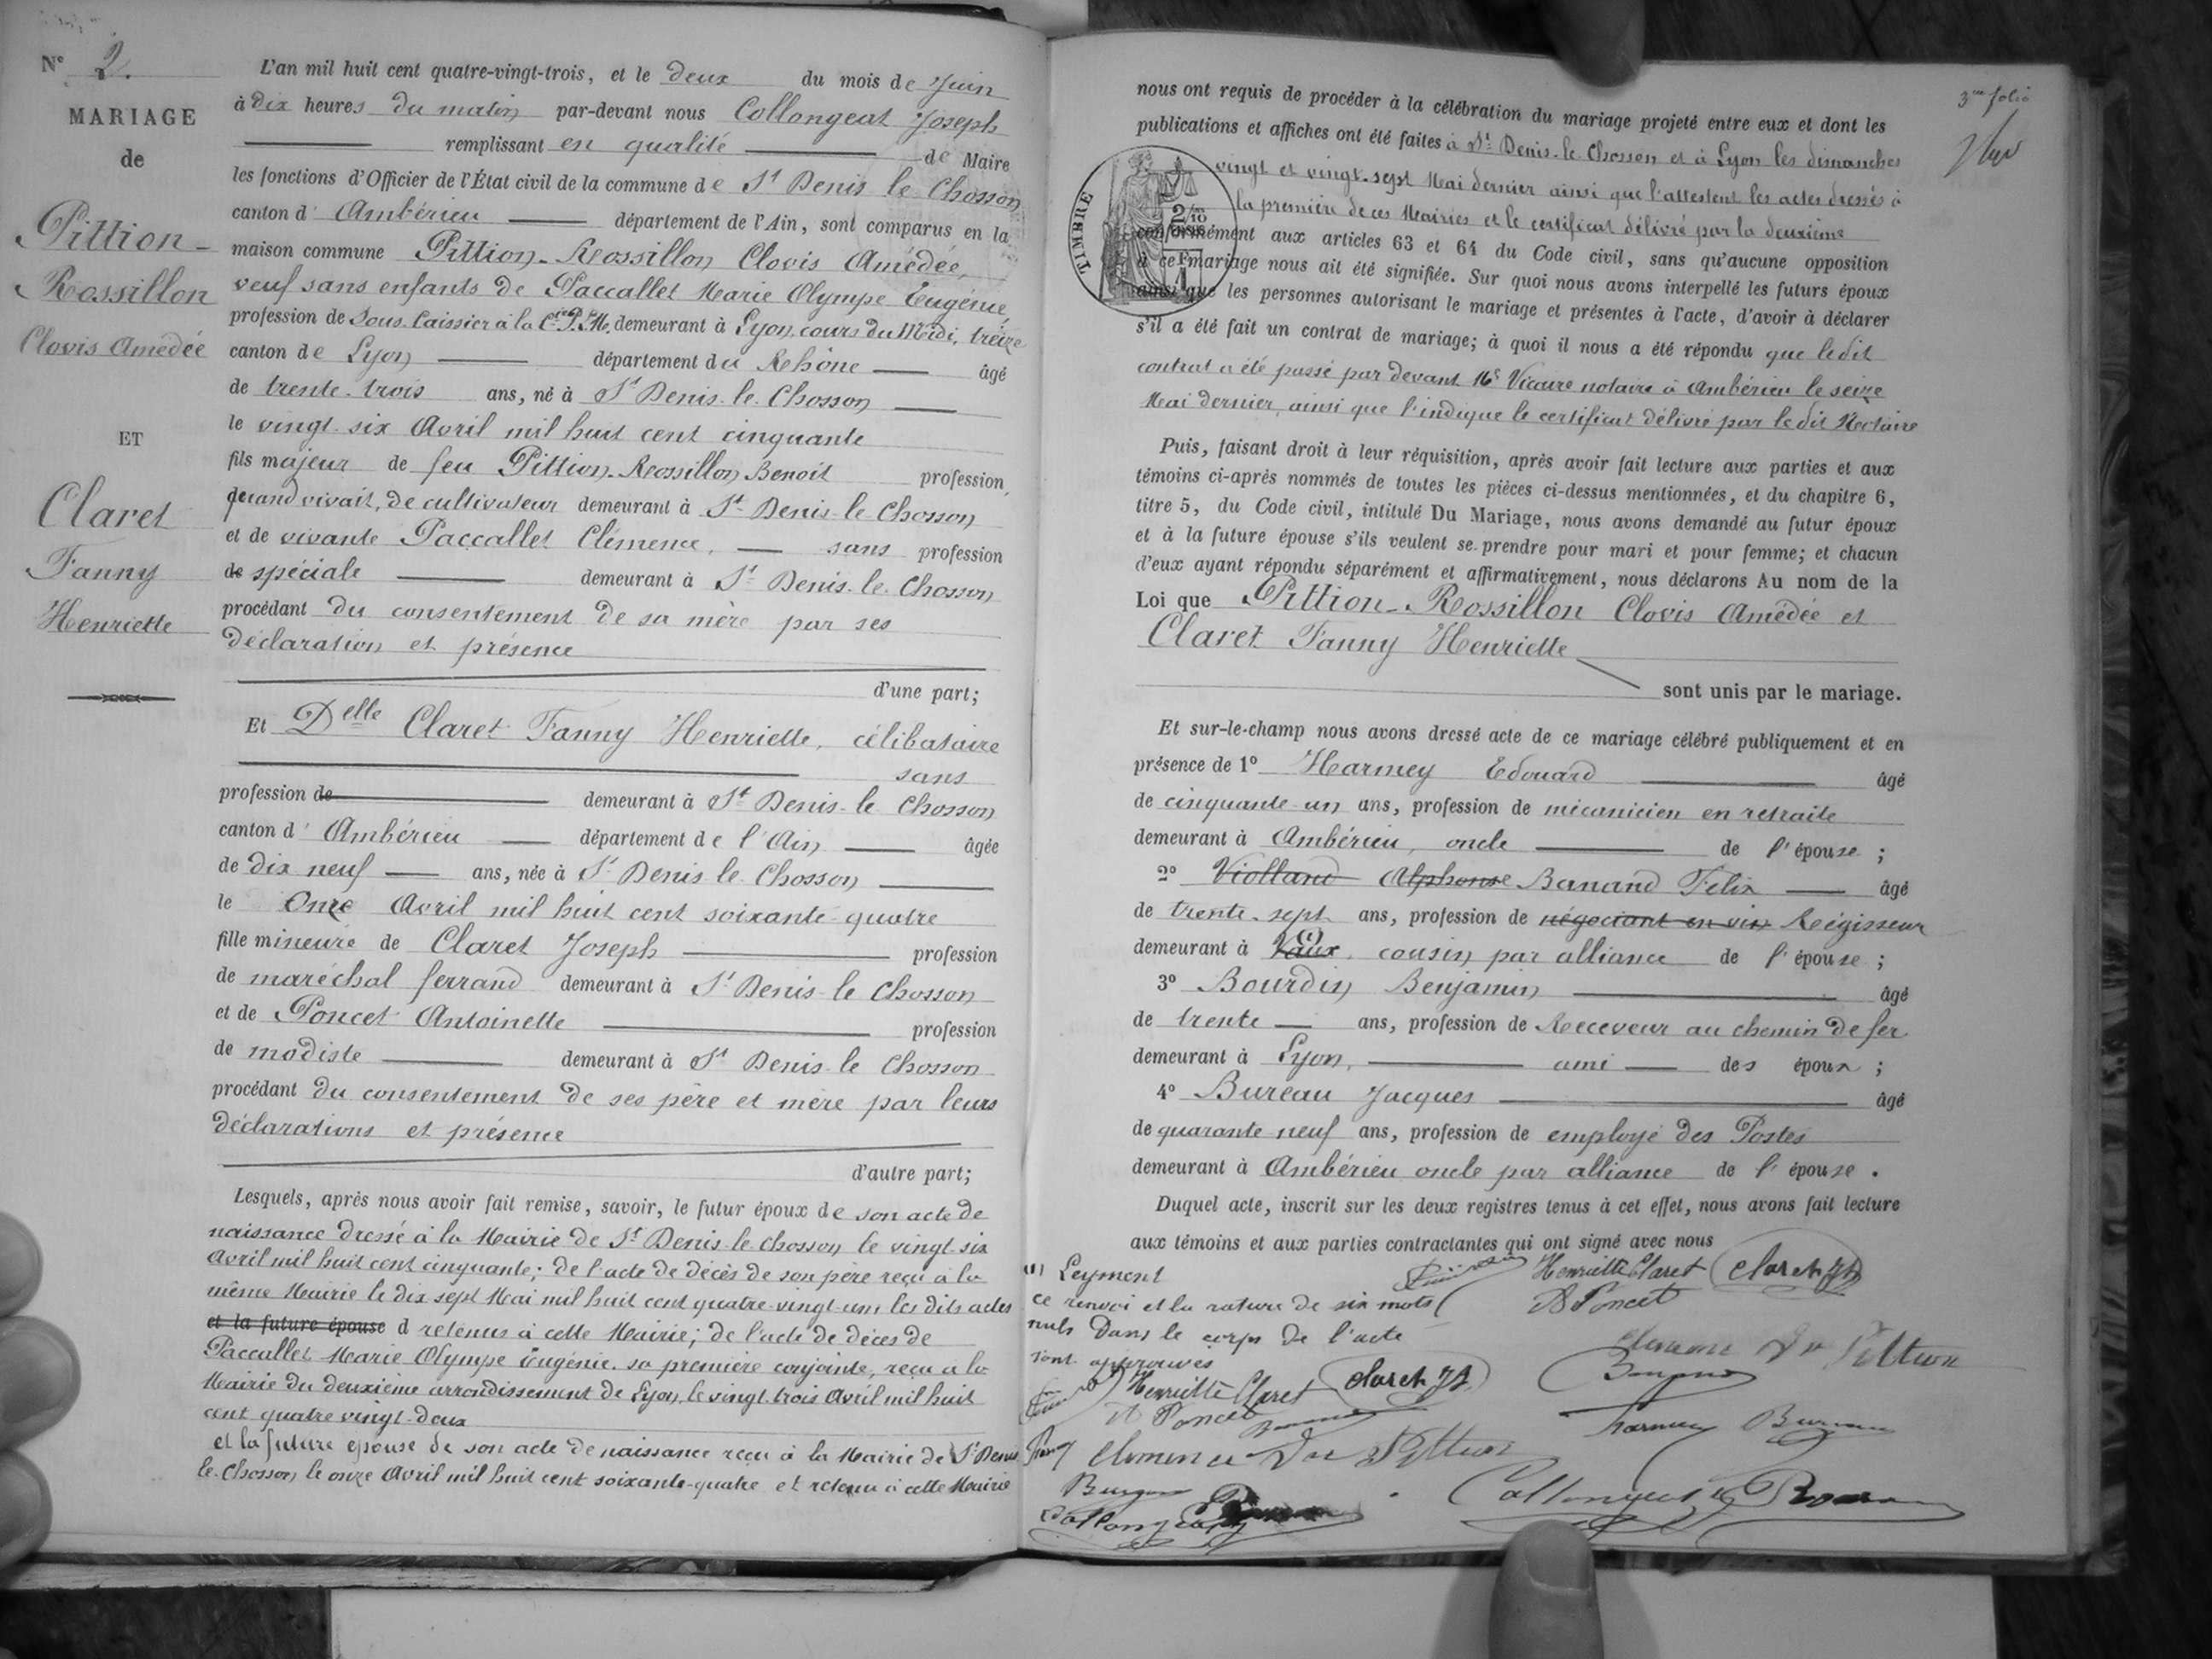 N° 2.
MARIAGE
de
Pittion-
Rossillon
Clovis Amédée
ET
Claret
Fanny
Henriette
L'an mil huit cent quatre-vingt-trois, et le deux du mois de Juin
à dix heures du matin par-devant nous Collongeat Joseph
remplissant en qualité de Maire
les fonctions d'Officier de l'État civil de la commune de St Denis le Chosson
canton d' Ambérieu département de l'Ain, sont comparus en la
maison commune Pittion-Rossillon Clovis Amédée,
veuf sans enfants de Paccallet Marie Olympe Eugénie,
profession de Sous-Caissier à la Cie P.L.M. demeurant à Lyon, cours du Midi, treize
canton de Lyon département du Rhône âgé
de trente-trois ans, né à St Denis-le-Chosson
le vingt-six Avril mil huit cent cinquante
fils majeur de feu Pittion-Rossillon Benoit profession,
quand vivait, de cultivateur demeurant à St Denis-le Chosson
et de vivante Paccallet Clémence, sans profession
de spéciale demeurant à St Denis-le-Chosson
procédant du consentement de sa mère par ses
déclaration et présence
d'une part;
Et Delle Claret Fanny Henriette, célibataire
sans
profession de demeurant à St Denis-le Chosson
canton d' Ambérieu département de l'Ain âgée
de dix neuf ans, née à St Denis le Chosson
le Onze Avril mil huit cent soixante-quatre
fille mineure de Claret Joseph profession
de maréchal ferrand demeurant à St Denis-le Chosson
et de Poncet Antoinette profession
de modiste demeurant à St Denis-le Chosson
procédant du consentement de ses père et mère par leurs
déclarations et présence
d'autre part;
Lesquels, après nous avoir fait remise, savoir, le futur époux de son acte de
naissance dressé à la Mairie de St Denis-le-Chosson le vingt six
Avril mil huit cent cinquante; de l'acte de décès de son père reçu à la
même Mairie le dix sept Mai mil huit cent quatre-vingt-un, les dits actes
et la future épouse d retenus à cette Mairie; de l'acte de décès de
Paccallet Marie Olympe Eugénie, sa première conjointe, reçu à la
Mairie du deuxième arrondissement de Lyon, le vingt-trois Avril mil huit
cent quatre vingt-deux
et la future épouse de son acte de naissance reçu à la Mairie de St Denis
le-Chosson le onze Avril mil huit cent soixante-quatre et retenu à cette Mairie
3me folio
nous ont requis de procéder à la célébration du mariage projeté entre eux et dont les
publications et affiches ont été faites à St Denis-le Chosson et à Lyon les dimanches
vingt et vingt-sept Mai dernier ainsi que l'attestent les actes dressés à
la première de ces Mairies et le certificat délivré par la deuxième
conformément aux articles 63 et 64 du Code civil, sans qu'aucune opposition
à ce mariage nous ait été signifiée. Sur quoi nous avons interpellé les futurs époux
ainsi que les personnes autorisant le mariage et présentes à l'acte, d'avoir à déclarer
s'il a été fait un contrat de mariage; à quoi il nous a été répondu que ledit
contrat a été passé par devant Me Vicaire notaire à Ambérieu le seize
Mai dernier, ainsi que l'indique le certificat délivré par le dit Notaire
TIMBRE
2/10
Puis, faisant droit à leur réquisition, après avoir fait lecture aux parties et aux
témoins ci-après nommés de toutes les pièces ci-dessus mentionnées, et du chapitre 6,
titre 5, du Code civil, intitulé Du Mariage, nous avons demandé au futur époux
et à la future épouse s'ils veulent se prendre pour mari et pour femme; et chacun
d'eux ayant répondu séparément et affirmativement, nous déclarons Au nom de la
Loi que Pittion-Rossillon Clovis Amédée et
Claret Fanny Henriette
sont unis par le mariage.
Et sur-le-champ nous avons dressé acte de ce mariage célébré publiquement et en
présence de 1° Harmey Edouard âgé
de cinquante-un ans, profession de mécanicien en retraite
demeurant à Ambérieu, oncle de l'épouse ;
2° Viollard Alphonse Banand Félix âgé
de trente-sept ans, profession de négociant en vin Régisseur
demeurant à Vaux (1), cousin par alliance de l'épouse ;
3° Bourdin Benjamin âgé
de trente ans, profession de Receveur au chemin de fer
demeurant à Lyon, ami des époux ;
4° Bureau Jacques âgé
de quarante neuf ans, profession de employé des Postes
demeurant à Ambérieu oncle par alliance de l'épouse.
Duquel acte, inscrit sur les deux registres tenus à cet effet, nous avons fait lecture
aux témoins et aux parties contractantes qui ont signé avec nous
(1) Leyment
ce renvoi et la rature de six mots
nuls dans le corps de l'acte
sont approuvés
Henriette Claret Claret Jh
A Poncet
Clémence Vve Pittion
Harmey Bureau
Henriette Claret Claret Jh
A Poncet
Clémence Vve Pittion
Collongeat
Collongeat